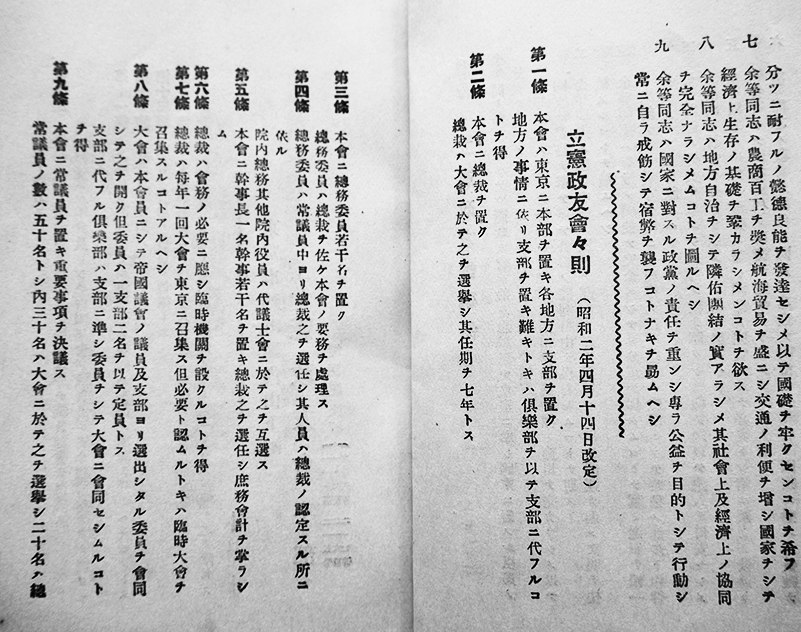 分ツニ耐フルノ懿德良能ヲ發達セシメ以テ國礎ヲ牢クセンコトヲ希フ
七 余等同志ハ農商百工ヲ奬メ航海貿易ヲ盛ニシ交通ノ利便ヲ增シ國家ヲシテ
經濟上生存ノ基礎ヲ鞏カラシメンコトヲ欲ス
八 余等同志ハ地方自治ヲシテ隣佑團結ノ實アラシメ其社會上及經濟上ノ協同
ヲ完全ナラシメムコトヲ圖ルヘシ
九 余等同志ハ國家ニ對スル政黨ノ責任ヲ重ンシ專ラ公益ヲ目的トシテ行動シ
常ニ自ラ戒飭シテ宿弊ヲ襲フコトナキヲ勗ムヘシ
立憲政友會々則(昭和二年四月十四日改定)
第一條 本會ハ東京ニ本部ヲ置キ各地方ニ支部ヲ置ク
地方ノ事情ニ依リ支部ヲ置キ難キトキハ俱樂部ヲ以テ支部ニ代フルコ
トヲ得
第二條 本會ニ總裁ヲ置ク
總裁ハ大會ニ於テ之ヲ選擧シ其任期ヲ七年トス
第三條 本會ニ總務委員若干名ヲ置ク
總務委員ハ總裁ヲ佐ケ本會ノ要務ヲ處理ス
第四條 總務委員ハ常議員中ヨリ總裁之ヲ選任シ其人員ハ總裁ノ認定スル所ニ
依ル
院內總務其他院內役員ハ代議士會ニ於テ之ヲ互選ス
第五條 本會ニ幹事長一名幹事若干名ヲ置キ總裁之ヲ選任シ庶務會計ヲ掌ラシ
ム
第六條 總裁ハ會務ノ必要ニ應シ臨時機關ヲ設クルコトヲ得
第七條 總裁ハ每年一回大會ヲ東京ニ召集ス但必要ト認ムルトキハ臨時大會ヲ
召集スルコトアルヘシ
第八條 大會ハ本會員ニシテ帝國議會ノ議員及支部ヨリ選出シタル委員ヲ會同
シテ之ヲ開ク但委員ハ一支部二名ヲ以テ定員トス
支部ニ代フル俱樂部ハ支部ニ準シ委員ヲシテ大會ニ會同セシムルコト
ヲ得
第九條 本會ニ常議員ヲ置キ重要事項ヲ決議ス
常議員ノ數ハ五十名トシ內三十名ハ大會ニ於テ之ヲ選擧シ二十名ハ總